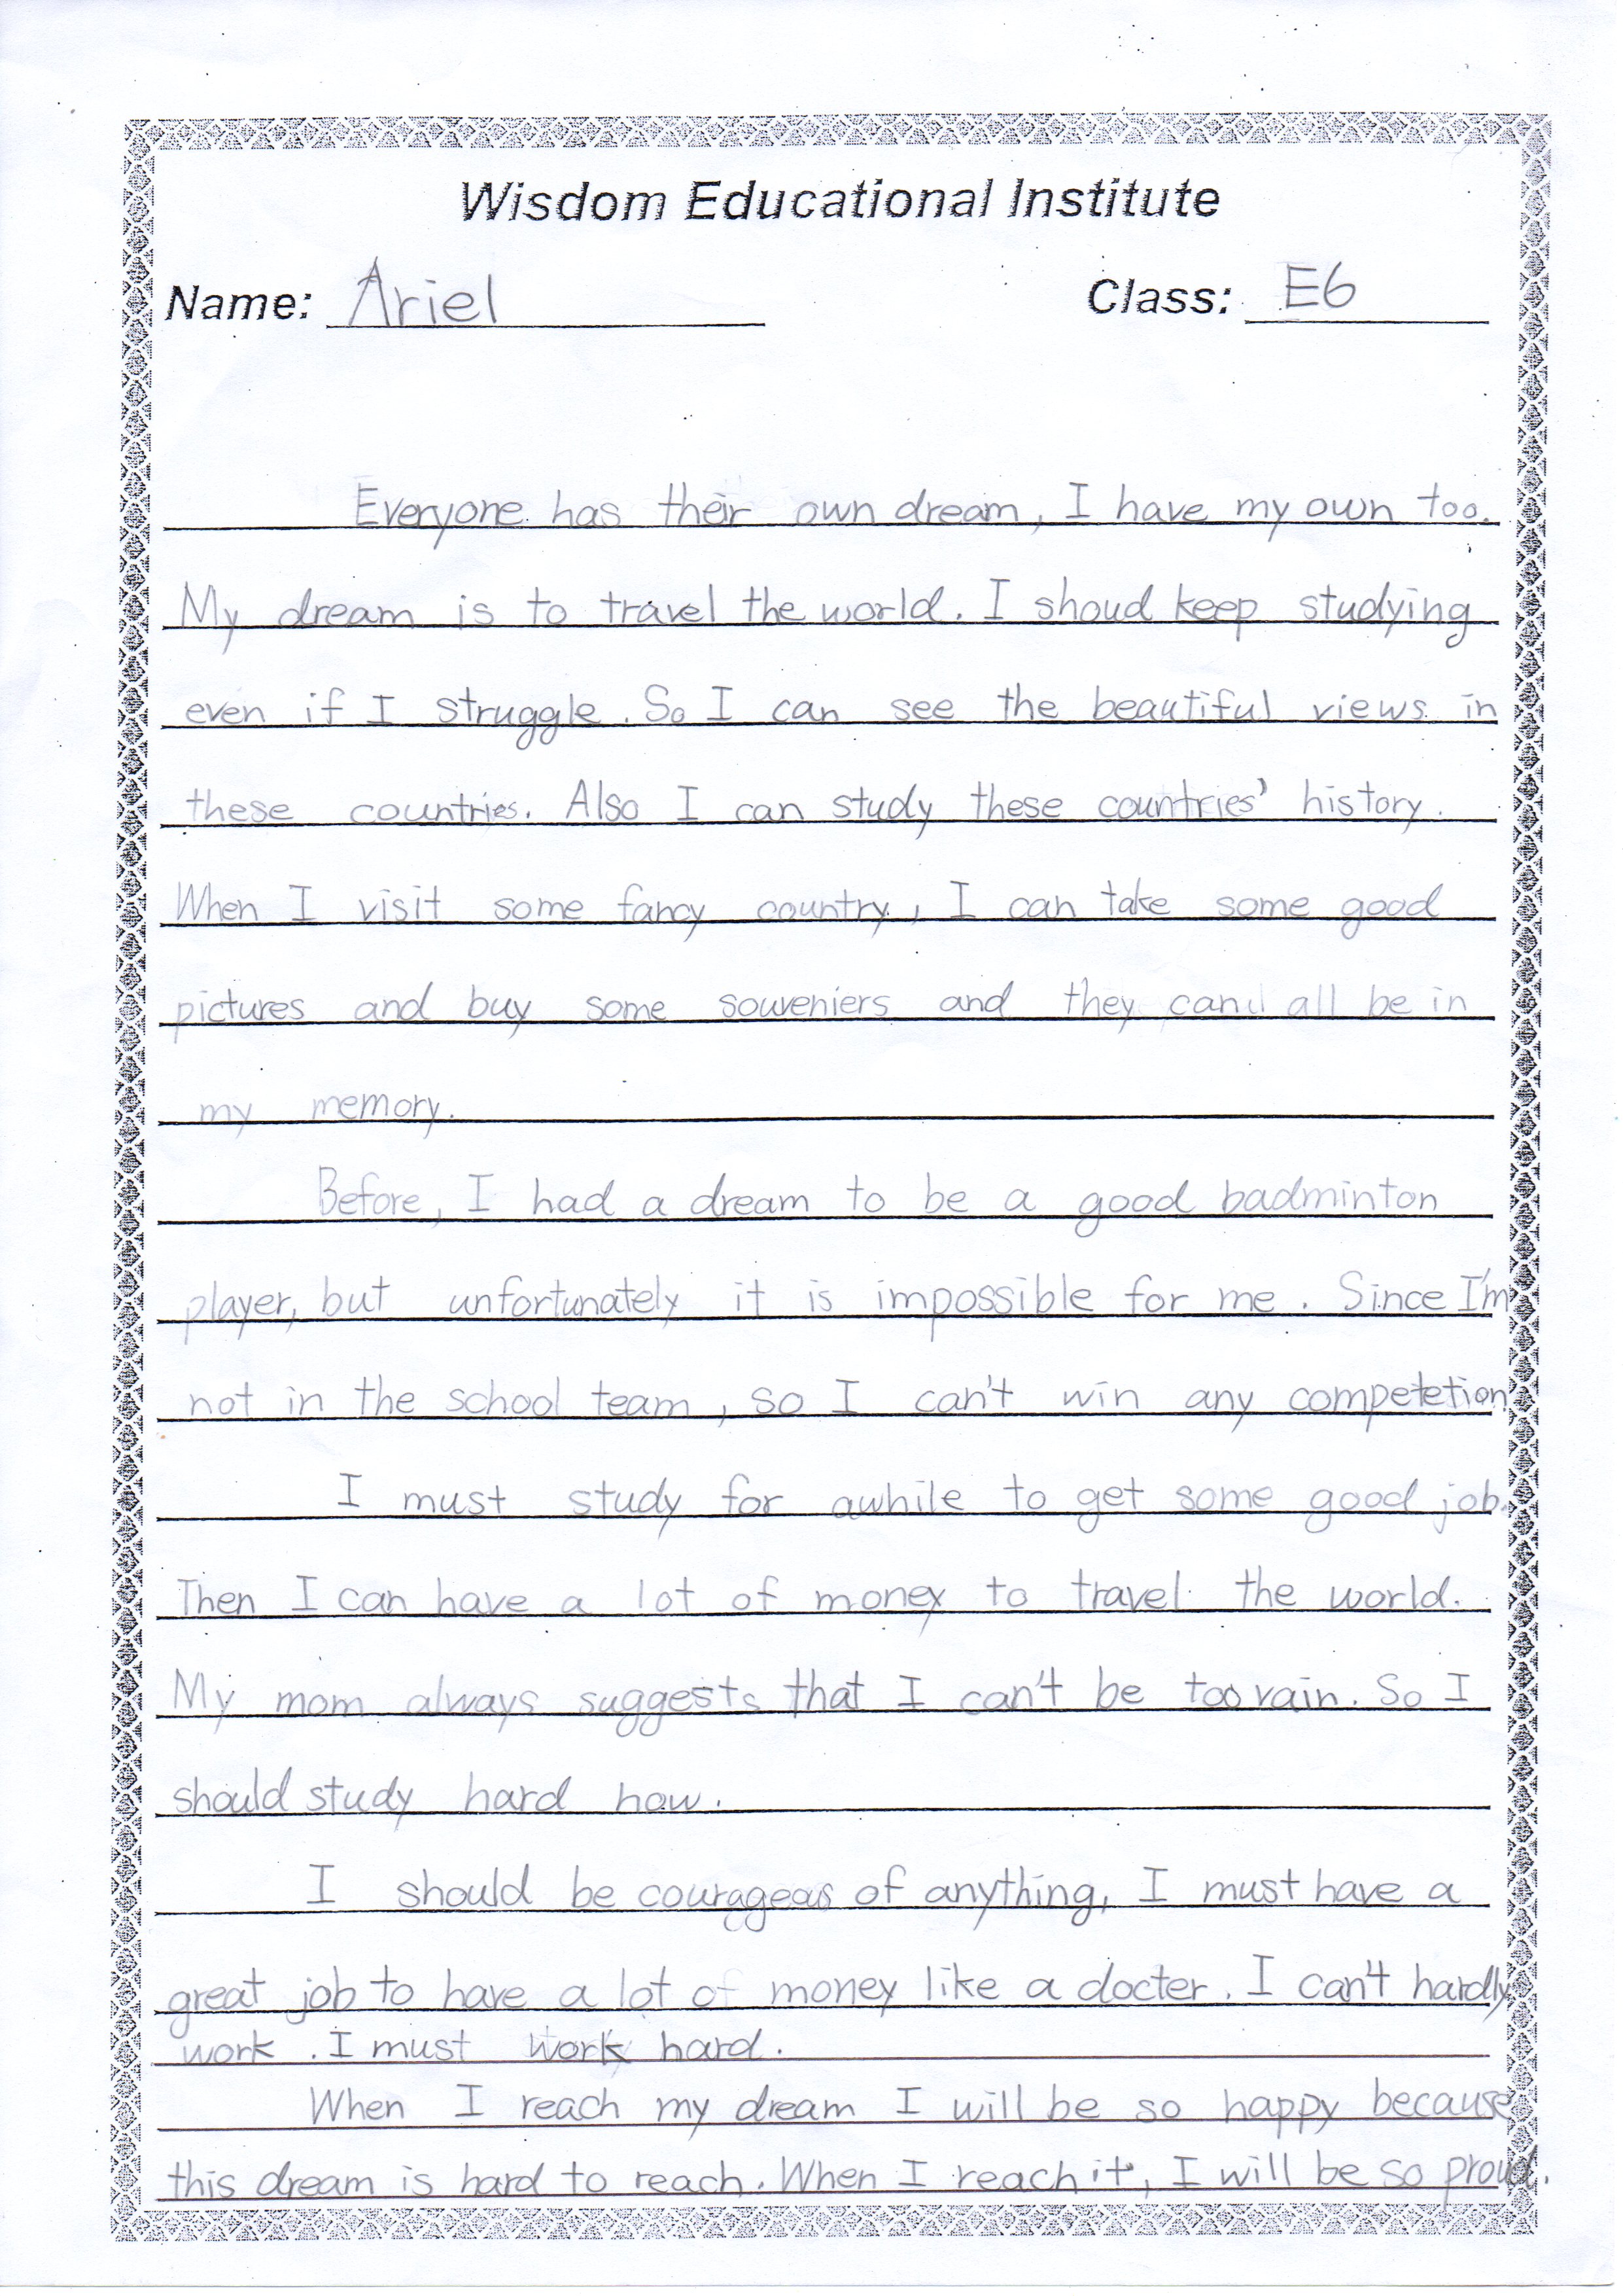 Wisdom Educational Institute
Name: Ariel Class: E6
Everyone has their own dream, I have my own too.
My dream is to travel the world. I shoud keep studying
even if I struggle. So I can see the beautiful views in
these countries. Also I can study these countries' history.
When I visit some fancy country, I can take some good
pictures and buy some souveniers and they can all be in
my memory.
Before, I had a dream to be a good badminton
player, but unfortunately it is impossible for me. Since I'm
not in the school team, so I can't win any competetion.
I must study for awhile to get some good job.
Then I can have a lot of money to travel the world.
My mom always suggests that I can't be too vain. So I
should study hard now.
I should be courageous of anything, I must have a
great job to have a lot of money like a docter. I can't hardly
work. I must work hard.
When I reach my dream I will be so happy because
this dream is hard to reach. When I reach it, I will be so proud.